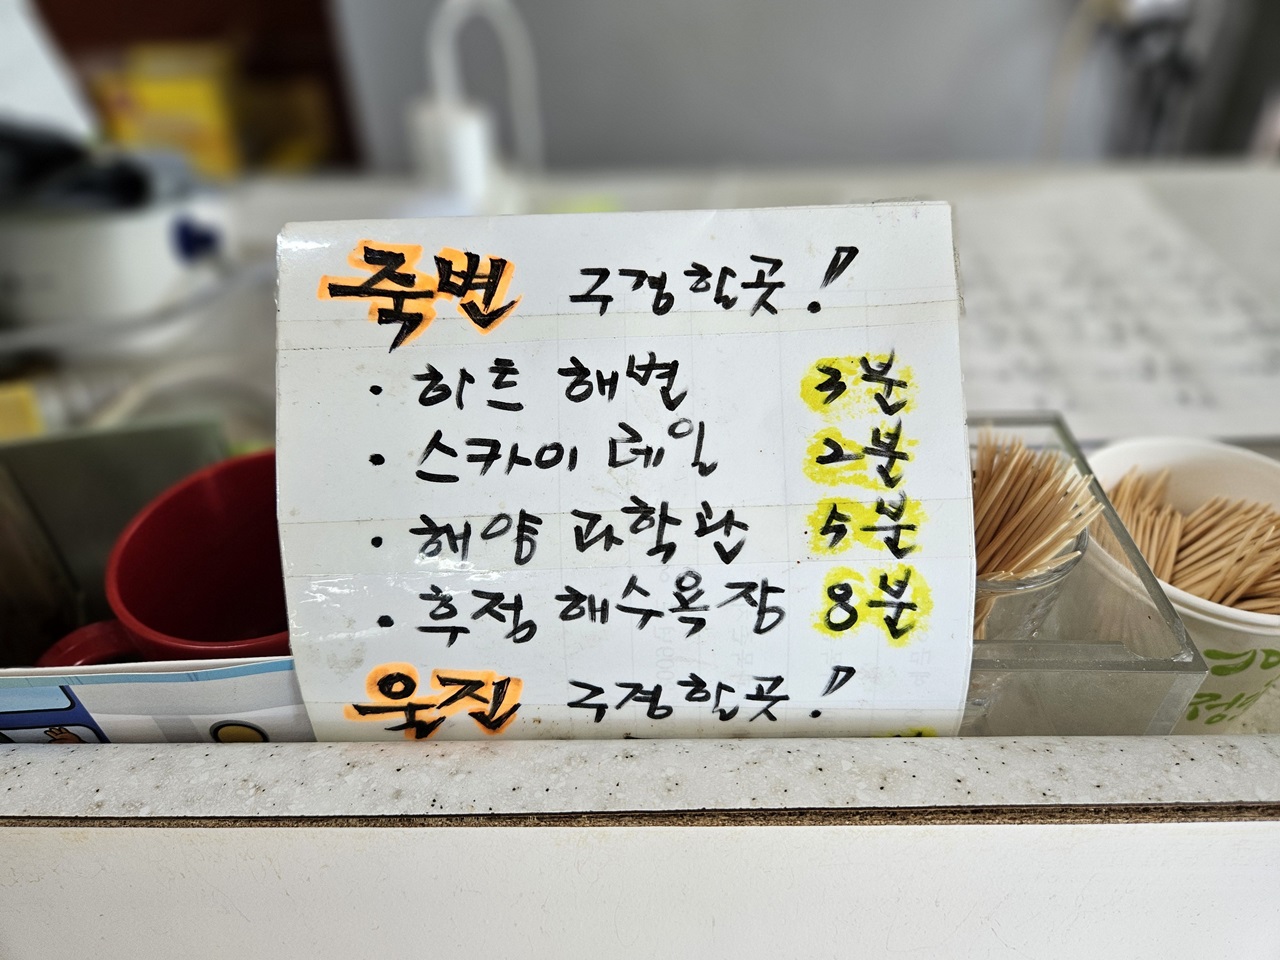 죽변 구경할곳!
• 하트 해변 3분
• 스카이 레일 2분
• 해양 과학관 5분
• 후정 해수욕장 8분
울진 구경할곳!